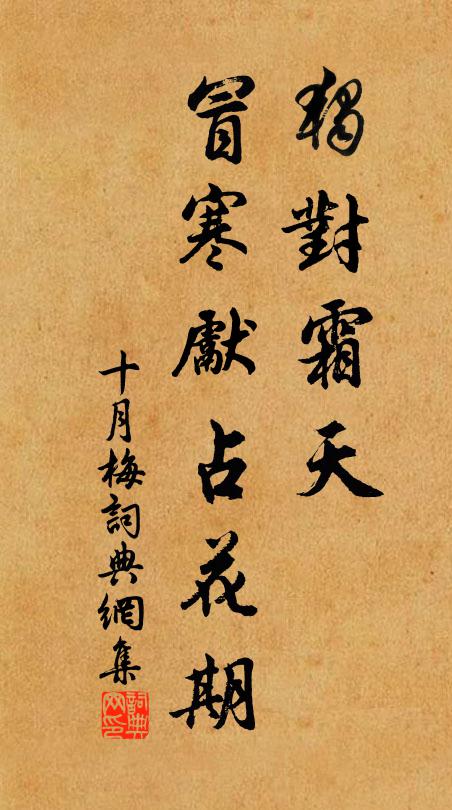 獨對霜天
冒寒獻占花期
十月梅詞典網集
詞典網印